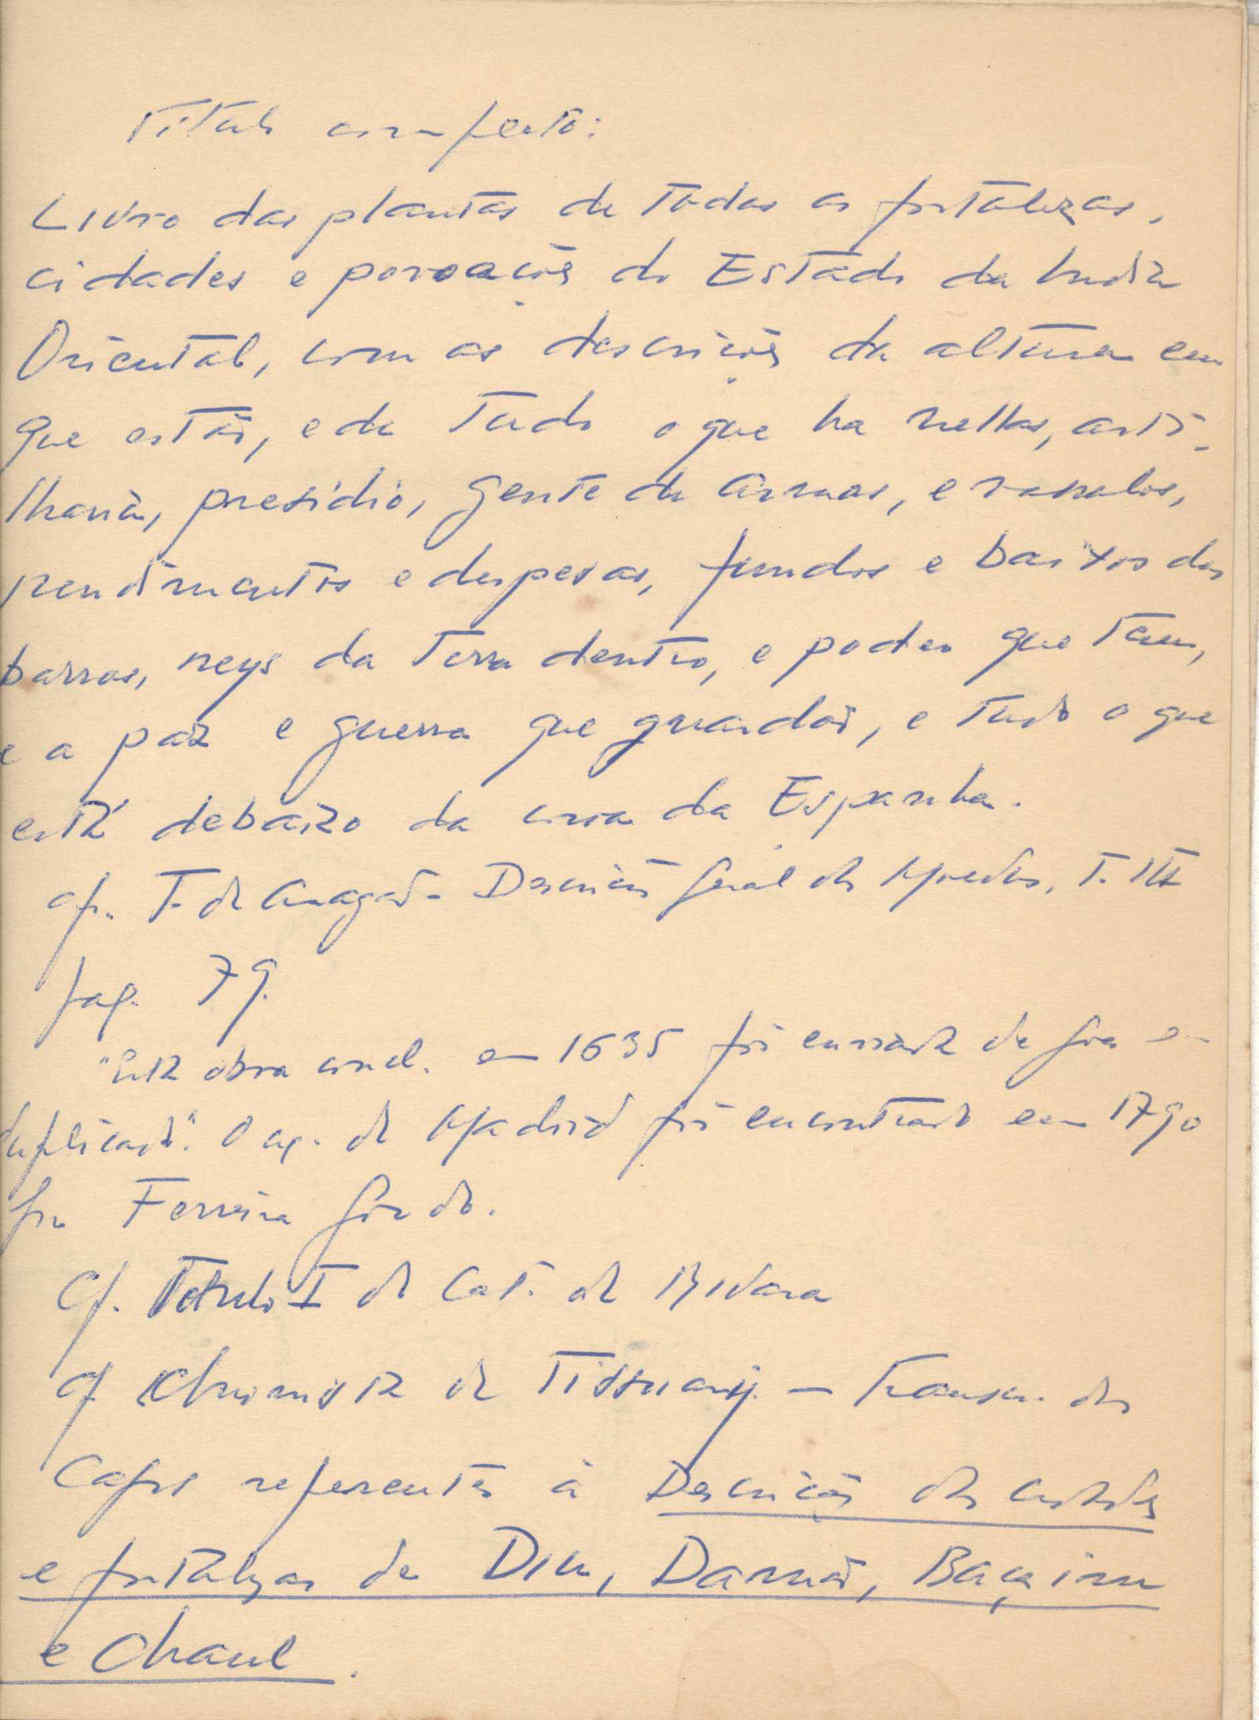 Titulo completo:
Livro das plantas de todas as fortalezas,
cidades e povoações do Estado da India
Oriental, com as descrições da altura em
que estão, e de tudo o que ha nellas, arti-
lharia, presidio, gente de armas, e vassalos,
rendimentos e despesas, fundos e baixos das
barras, reys da terra dentro, e poder que tem,
e a paz e guerra que guardão, e tudo o que
está debaixo da coroa da Espanha.
T. de Aragão - Descrição Geral das Moedas, T. III
pag. 79.
"Esta obra concl. em 1635 foi enviada de Goa em
duplicado". O ex. de Madrid foi encontrado em 1790
por Ferreira Gordo.
Cf. Titulo I do Cat. de Rivara
Cf. Chronista de Tissuary. - Transcr. dos
Caps referentes à Descrição das cidades
e fortalezas de Diu, Damão, Baçaim
e Chaul.